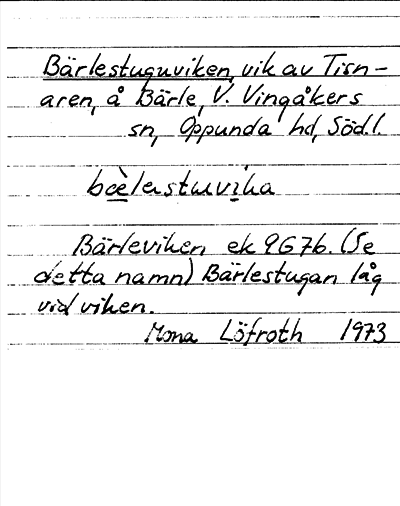 Bärlestuguviken, vik av Tisn-
aren, å Bärle, V. Vingåkers
sn, Oppunda hd, Söd.l.
bæ̀lastuvika
Bärleviken ek 9G7b. (Se
detta namn) Bärlestugan låg
vid viken.
Mona Löfroth 1973